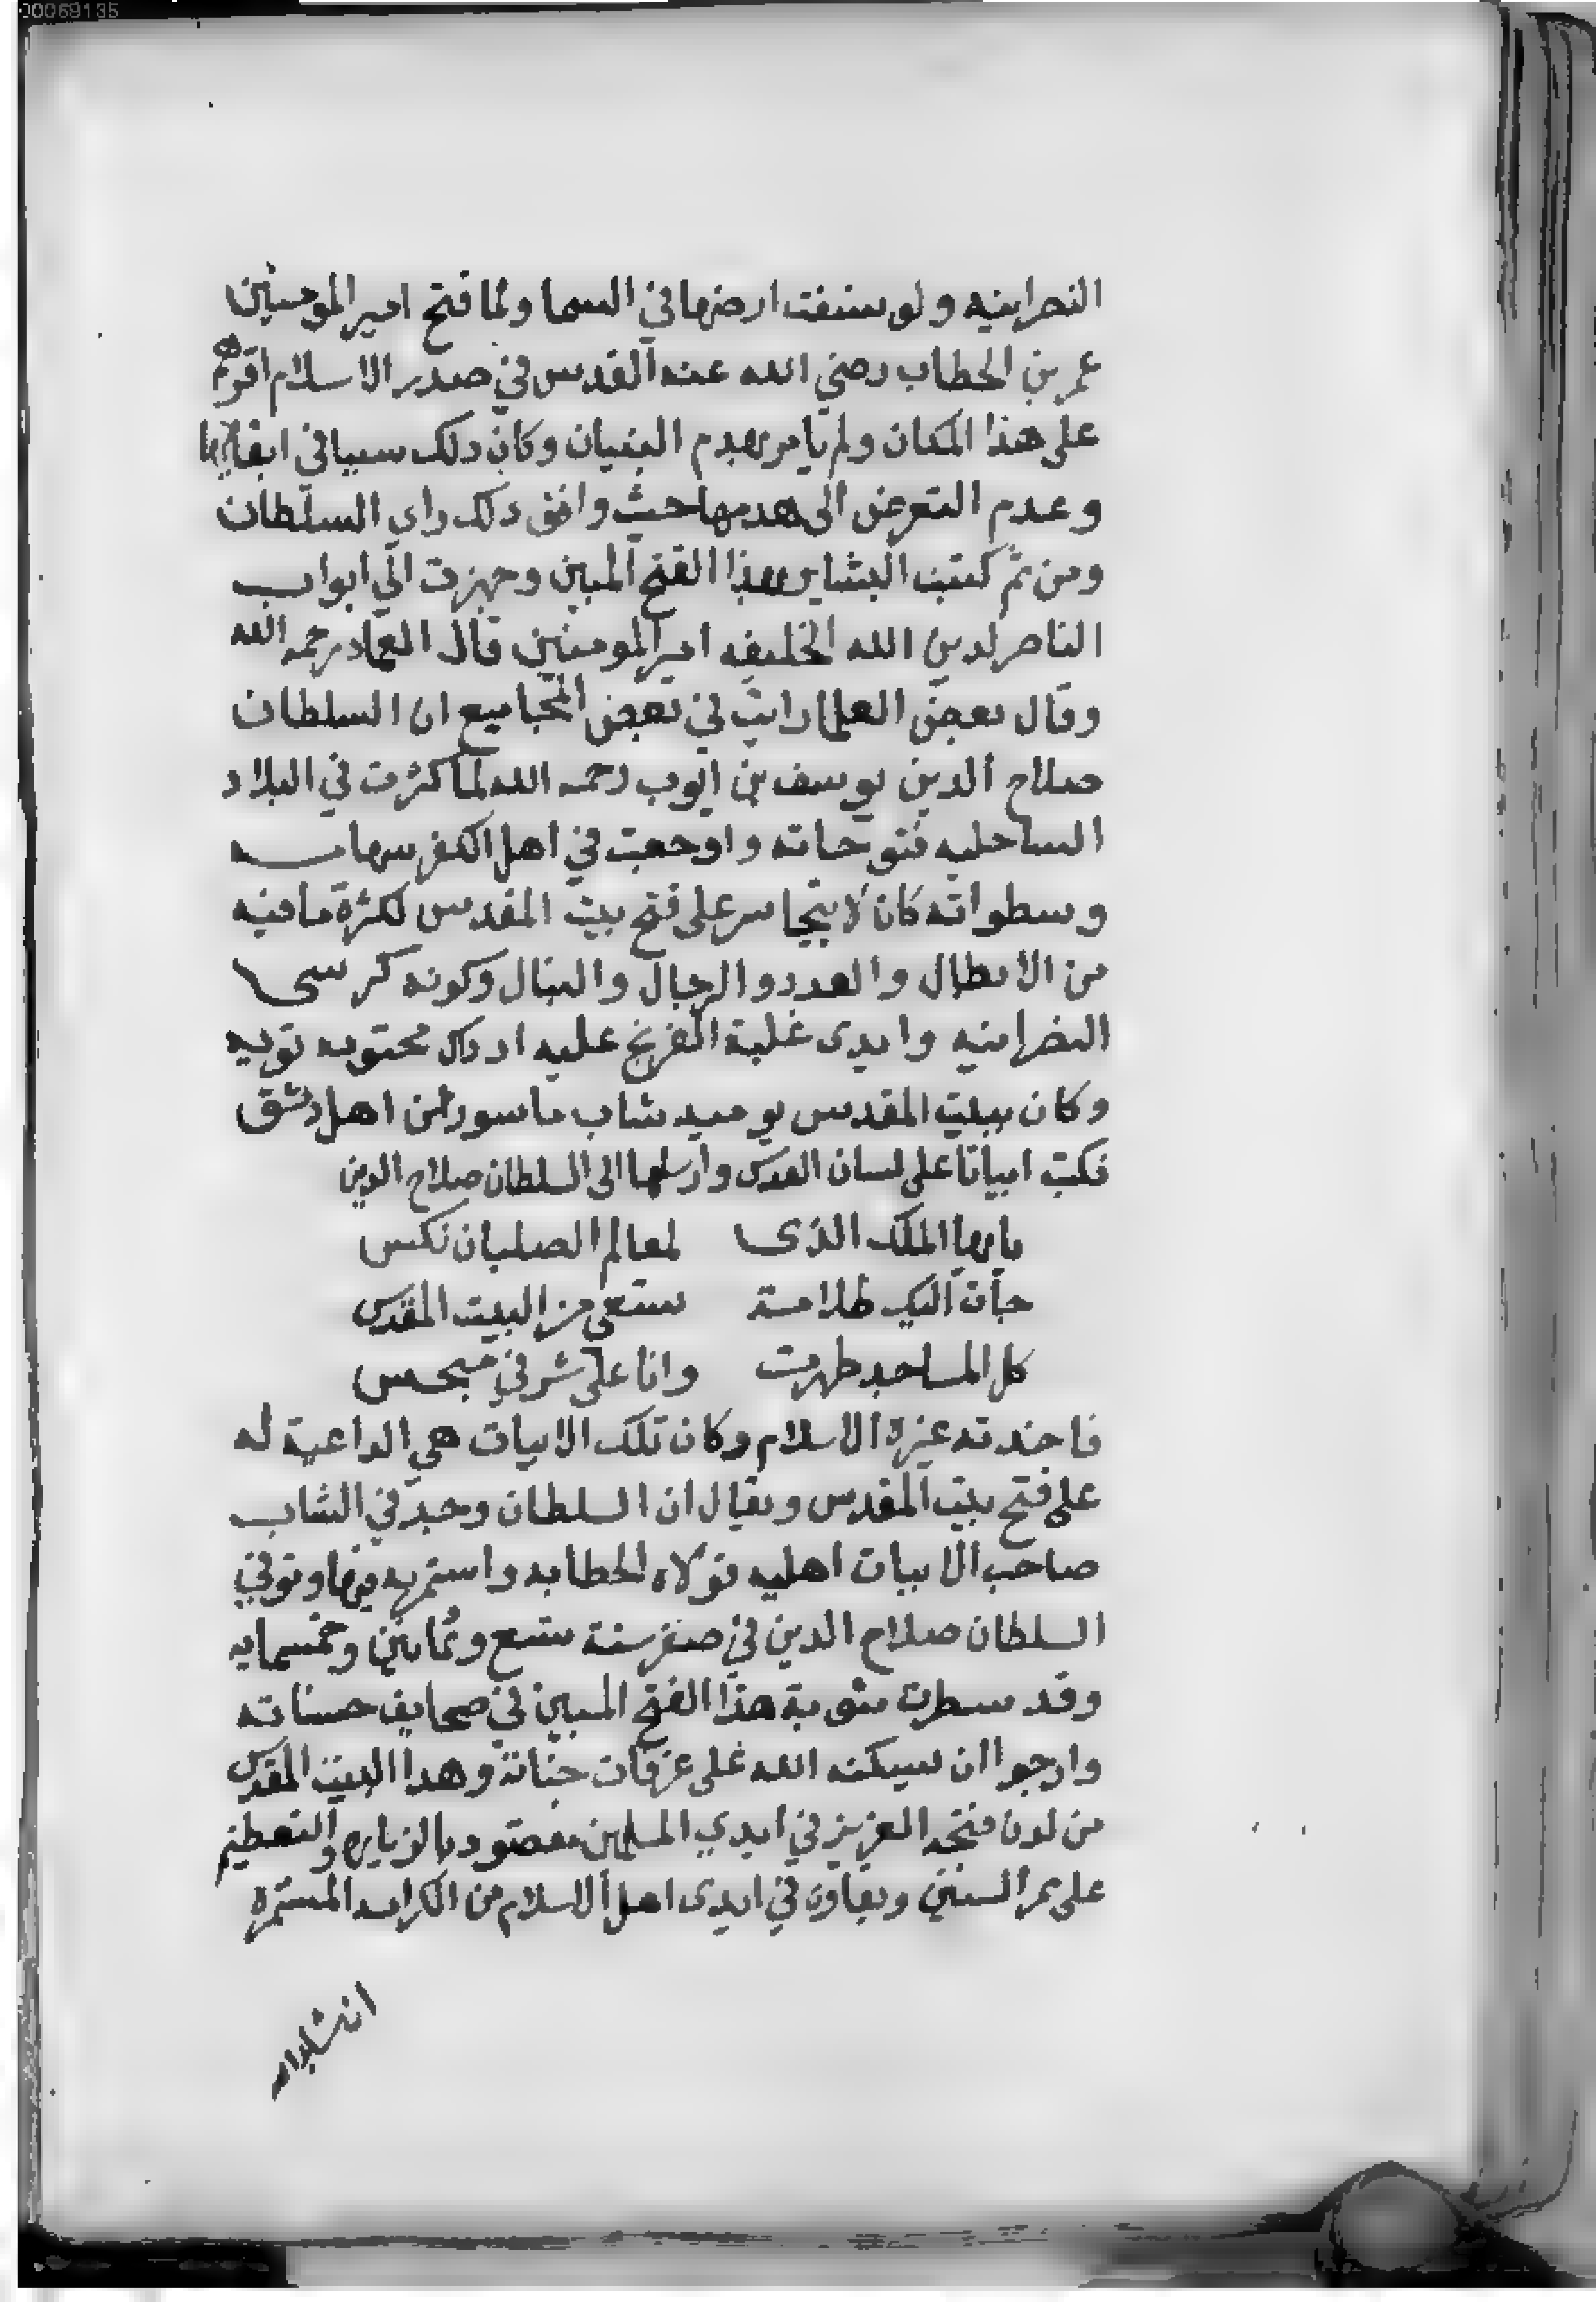 00069135
النصرانيه ولو سنفت ارضها في السما ولما فتح امير المومنين
عمر بن الخطاب رضي الله عنه القدس في صدر الاسلام اقرهم
على هذا المكان ولم يامر بهدم البنيان وكان دلك سببا في ابقايها
وعدم التعرض الى هدمها حيث وافق دلك راي السلطان
ومن ثم كتبت البشاير بهذا الفتح المبين وجهزت الي ابواب
الناصر لدين الله الخليفه امير المومنين قال العماد رحمه الله
وقال بعض العلما رايت في بعض المجاميع ان السلطان
صلاح الدين يوسف بن ايوب رحمه الله لما كثرت في البلاد
الساحليه فتوحاته واوجعت في اهل الكفر سهامه
وسطواته كان لا يتجاسر على فتح بيت المقدس لكثرة ما فيه
من الابطال والعدد والرجال والنبال وكونه كرسى
النصرانيه وايدى غلبة الفرنج عليه
وكان ببيت المقدس يوميد شاب ماسور من اهل دمشق
فكتب ابياتا على لسان القدس وارسلها الى السلطان صلاح الدين
يا ايها الملك الذى لمعالم الصلبان نكس
جأت اليك ظلامة ستعى من البيت المقدس
كل المساجد طهرت وانا على شرفي منجس
فاخذته غيرة الاسلام وكان تلك الابيات هي الداعية له
على فتح بيت المقدس ويقال ان السلطان وجد في الشاب
صاحب الابيات اهليه فولاه الخطابه واستمر به فيها وتوفي
السلطان صلاح الدين في صفر سنة تسع وثمانين وخمسمايه
وقد سطرت مثوبة هذا الفتح المبين في صحايف حسناته
وارجوا ان يسكنه الله على غرفات جناته وهدا البيت المقدس
من لدن فتحه العزيز في ايدي المسلمين مقصود بالزياره والتعظيم
على ممر السنين وبقاوه في ايدى اهل الاسلام من الكرامه المستمره
ان شاء الله